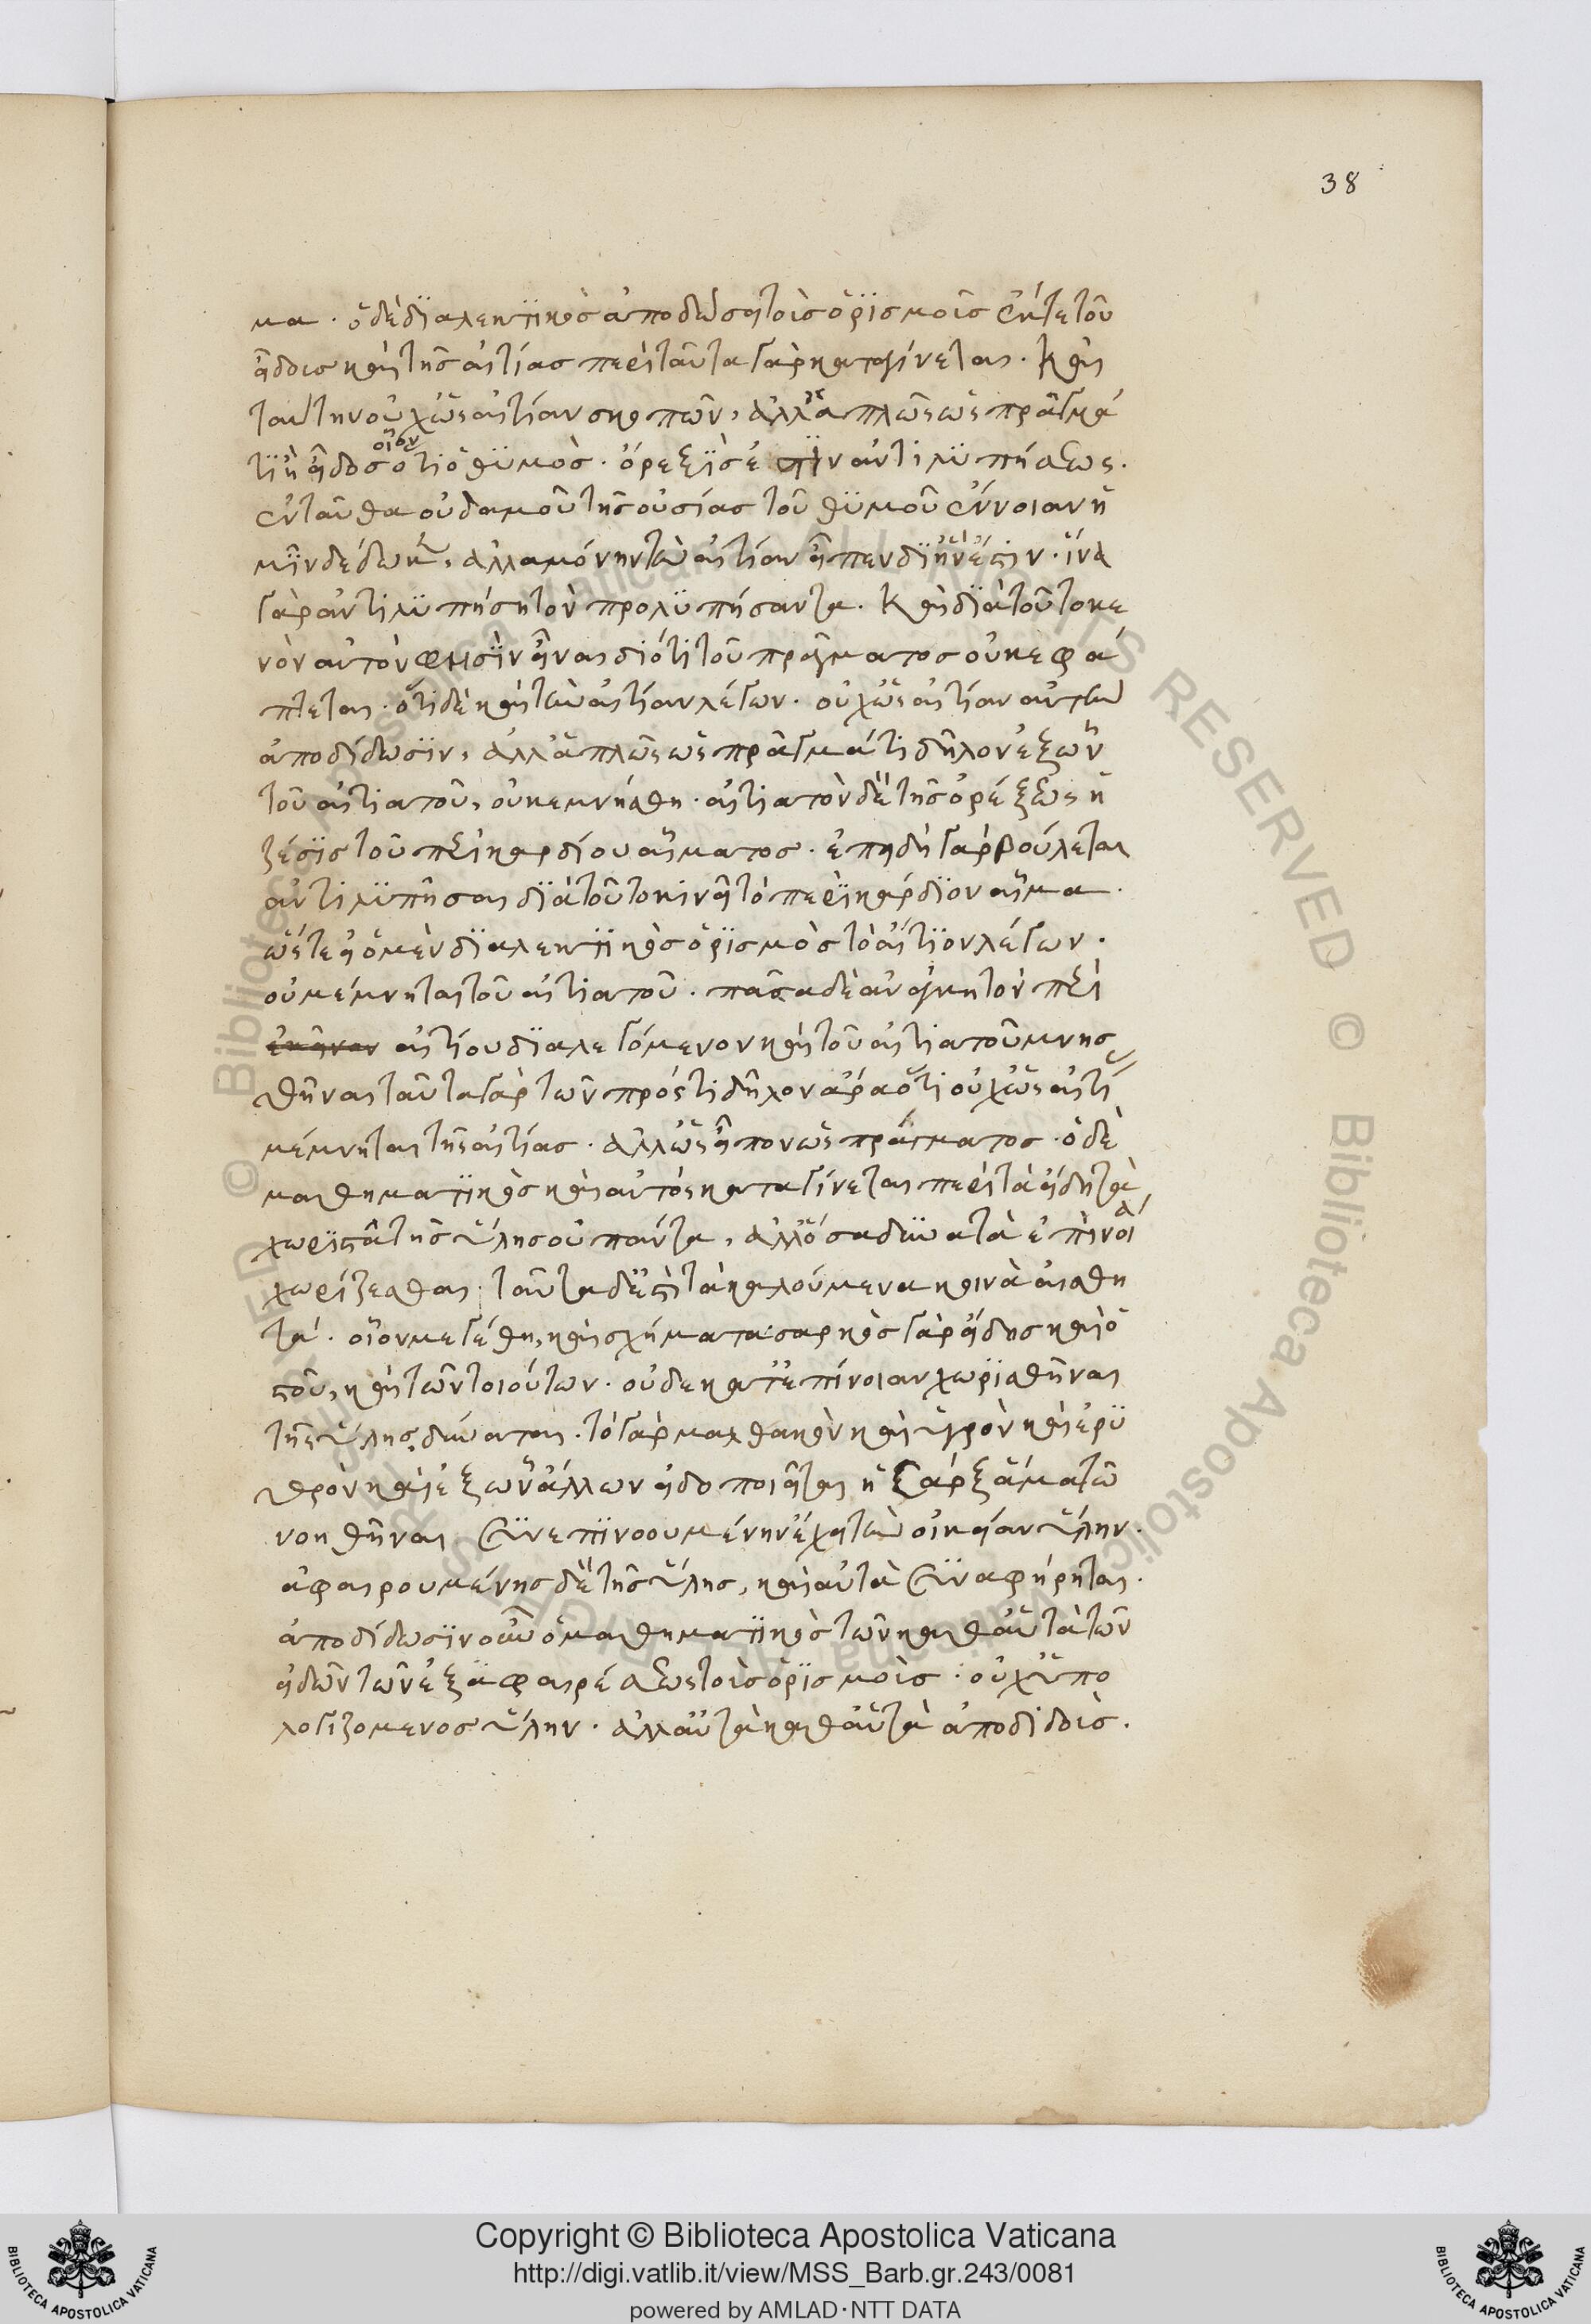 38
μα. ὁ δὲ διαλεκτικὸς ἀποδώσει τοῖς ὁρισμοῖς ἔκ τε τοῦ
εἴδους καὶ τῆς αἰτίας περὶ ταῦτα γὰρ καταγίνεται. καὶ
ταύτην οὐχ ὡς αἰτίαν σκοπῶν, ἀλλ' ἁπλῶς ὡς πρᾶγμά
τι ἢ εἶδος οἷον ὅτι ὁ θυμὸς. ὄρεξις ἐστιν ἀντιλυπήσεως.
ἐνταῦθα οὐδαμοῦ τῆς οὐσίας τοῦ θυμοῦ ἔννοιαν ἡ
μῖν δέδωκεν, ἀλλὰ μόνην τὴν αἰτίαν εἶπεν δι' ἣν ἐστιν. ἵνα
γὰρ ἀντιλυπήση τὸν προλυπήσαντα. καὶ διὰ τοῦτο κε
νὸν αὐτόν φησὶν εἶναι διότι τοῦ πράγματος οὐκ ἐφά
πτεται. ὅτι δὲ καὶ τὴν αἰτίαν λέγων. οὐχ ὡς αἰτίαν αὐτὴν
ἀποδίδωσιν, ἀλλ' ἁπλῶς ὡς πρᾶγμά τι δῆλον ἐξ ὧν
τοῦ αἰτιατοῦ, οὐκ ἐμνήσθη. αἰτιατὸν δὲ τῆς ὀρέξεως ἡ
ζέσις τοῦ περικαρδίου αἵματος. ἐπειδὴ γὰρ βούλεται
ἀντιλυπῆσαι διὰ τοῦτο κινεῖ τὸ περικάρδιον αἷμα.
ὥστε εἰ ὁ μὲν διαλεκτικὸς ὁρισμὸς τὸ αἴτιον λέγων.
οὐ μέμνηται τοῦ αἰτιατοῦ. πᾶσα δὲ ἀνάγκη τὸν περὶ
αἰτίου διαλεγόμενον καὶ τοῦ αἰτιατοῦ μνησ
θῆναι ταῦτα γὰρ τῶν πρός τι δῆλον ἄρα ὅτι οὐχ ὡς αἰτί
μέμνηται τῆς αἰτίας. ἀλλ' ὡς εἶπον ὡς πράγματος. ὁ δὲ
μαθηματικὸς καὶ αὐτός καταγίνεται περὶ τὰ εἴδη τὰ
χωριστὰ τῆς ὕλης οὐ πάντα, ἀλλ' ὅσα δύναται ἐπινοίᾳ
χωρίζεσθαι. ταῦτα δέ ἐστι τὰ καλούμενα κοινὰ αἰσθη
τά. οἷον μεγέθη, καὶ σχήματα: σαρκὸς γὰρ εἶδος καὶ ὀ
στοῦ, καὶ τῶν τοιούτων. οὐδὲ κατ' ἐπίνοιαν χωρισθῆναι
τῆς ὕλης δύναται. τὸ γὰρ μαλθακὸν καὶ ὑγρὸν καὶ ἐρυ
θρὸν καὶ ἐξ ὧν ἄλλων εἰδοποιεῖται ἡ σάρξ ἅμα τῶ
νοηθῆναι συνεπινοουμένην ἔχει τὴν οἰκείαν ὕλην.
ἀφαιρουμένης δὲ τῆς ὕλης, καὶ αὐτὰ συναφήρηται.
ἀποδίδωσιν οὖν ὁ μαθηματικὸς τῶν καθ' αὑτὰ τῶν
εἰδῶν τῶν ἐξ ἀφαιρέσεως τοῖς ὁρισμοῖς: οὐχ ὑπο
λογιζόμενος ὕλην. ἀλλ' αὐτὰ καθ' αὑτὰ ἀποδιδοὶς.
Copyright © Biblioteca Apostolica Vaticana
http://digi.vatlib.it/view/MSS_Barb.gr.243/0081
powered by AMLAD·NTT DATA